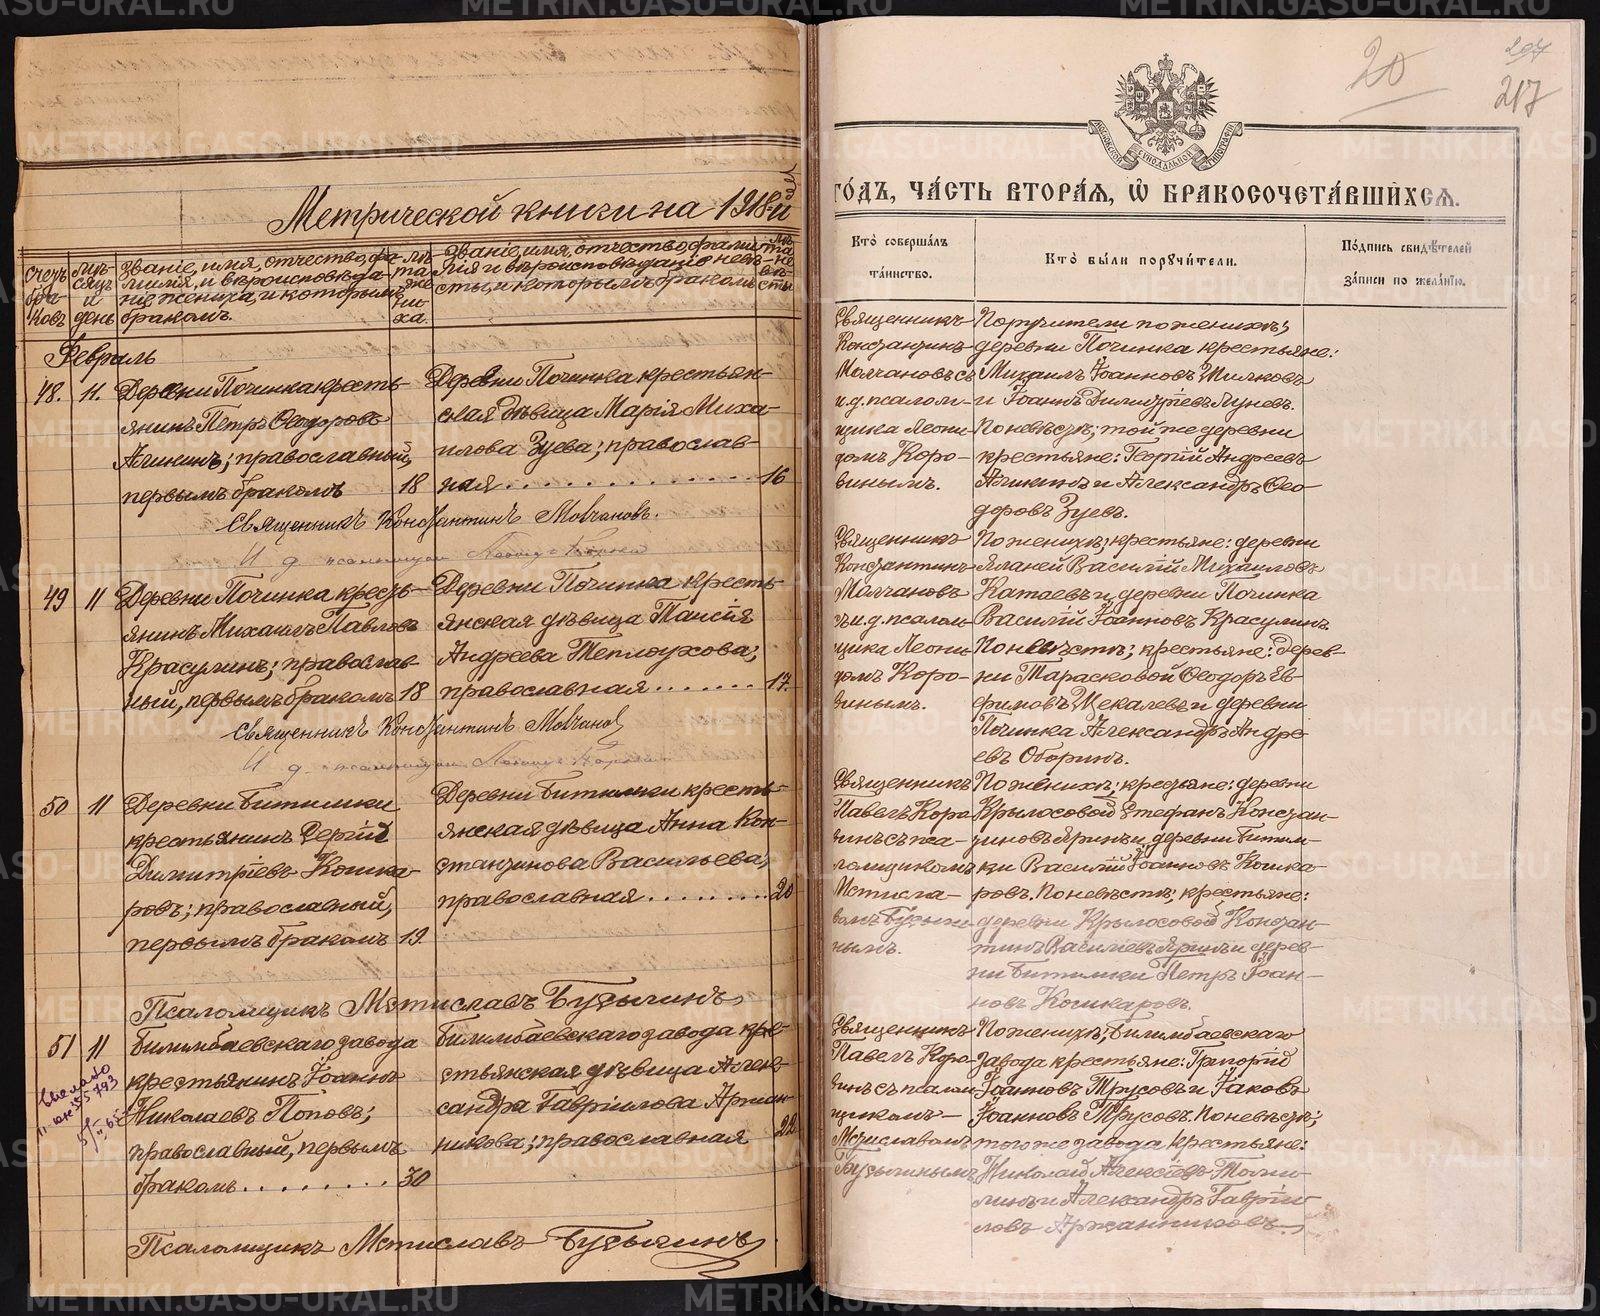 Метрической книги на 1918-й годъ
Счетъ браковъ
Мѣсяцъ и день
Званіе, имя, отчество, фамилія, и вѣроисповѣданіе жениха, и которымъ бракомъ.
Лѣта жениха.
Званіе, имя, отчество, фамилія и вѣроисповѣданіе невѣсты, и которымъ бракомъ
Лѣта невѣсты
Февраль
48. 11. Деревни Починка кресть-
янинъ Петръ Ѳеодоровъ
Аликинъ; православный,
первымъ бракомъ 18
Деревни Починка крестьян-
ская дѣвица Марія Миха-
илова Зуева; православ-
ная 16
Священникъ Константинъ Молчановъ.
И д псаломщика Леонидъ Коровинъ
49 11 Деревни Починка кресть-
янинъ Михаилъ Павловъ
Красулинъ; православ-
ный, первымъ бракомъ 18
Деревни Починка кресть-
янская дѣвица Таисія
Андреева Теплоухова;
православная 17.
Священникъ Константинъ Молчановъ
И д. псаломщика Леонидъ Коровинъ
50 11 Деревни Битимки
крестьянинъ Сергій
Димитріевъ Кошка-
ровъ; православный,
первымъ бракомъ 19.
Деревни Битимки кресть-
янская дѣвица Анна Кон-
стантинова Васильева,
православная 20
Псаломщикъ Мстиславъ Бусыгинъ
51 11 Билимбаевскаго завода
крестьянинъ Іоаннъ
Николаевъ Поповъ;
православный, первымъ
бракомъ 30
Билимбаевскаго завода кре-
стьянская дѣвица Алек-
сандра Гавріилова Аржан-
никова; православная 22
Псаломщикъ Мстиславъ Бусыгинъ
20
207
217
МОСКОВСКОЙ СѴНОДАЛЬНОЙ ТИПОГРАФІИ
ГО́ДЪ, ЧА́СТЬ ВТОРА́Я, Ѡ БРАКОСОЧЕТА́ВШИХСЯ.
Кто̀ соверша́лъ
та́инство.
Кто̀ бы́ли порꙋчи́тели.
По́дпись свидѣ́телей
за́писи по жела́нїю.
Священникъ
Константинъ
Молчановъ съ
и.д. псалом-
щика Леони-
домъ Коро-
винымъ.
Поручители по женихѣ;
деревни Починка крестьяне:
Михаилъ Іоанновъ Шилковъ
и Іоаннъ Димитріевъ Луневъ.
По невѣстѣ; той же деревни
крестьяне: Георгій Андреевъ
Аликинъ и Александръ Ѳео-
доровъ Зуевъ.
Священникъ
Константинъ
Молчановъ
съ и.д. псалом-
щика Леони-
домъ Коро-
винымъ.
По женихѣ; крестьяне: деревни
Яланей Василій Михаиловъ
Катаевъ и деревни Починка
Василій Іоанновъ Красулинъ.
По невѣстѣ; крестьяне: дерев-
ни Тарасковой Ѳеодоръ Ев-
фимовъ Щекалевъ и деревни
Починка Александръ Андре-
евъ Оборинъ.
Священникъ
Павелъ Коро-
винъ съ пса-
ломщикомъ
Мстисла-
вомъ Бусыги-
нымъ.
По женихѣ; крестьяне: деревни
Крылосовой Стефанъ Констан-
тиновъ Яринъ и деревни Битим-
ки Василій Іоанновъ Кошка-
ровъ. По невѣстѣ; крестьяне:
деревни Крылосовой Констан-
тинъ Василіевъ Яринъ и дерев-
ни Битимки Петръ Іоан-
новъ Кошкаровъ.
Священникъ
Павелъ Коро-
винъ съ псалом-
щикомъ
Мстиславомъ
Бусыгинымъ
По женихѣ; Билимбаевскаго
завода крестьяне: Григорій
Іоанновъ Трусовъ и Іаковъ
Іоанновъ Трусовъ. По невѣстѣ;
того же завода крестьяне:
Николай Алексѣевъ Томи-
линъ и Александръ Гаврії-
ловъ Аржанниковъ.
METRIKI.GASO-URAL.RU